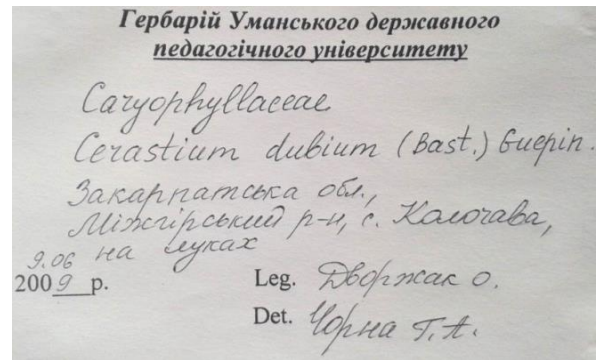 Гербарій Уманського державного
педагогічного університету
Caryophyllaceae
Cerastium dubium (Bast.) Guepin.
Закарпатська обл.,
Міжгірський р-н, с. Колочава,
на луках
9.06
2009 р.
Leg. Дворжак О.
Det. Чорна Г.А.